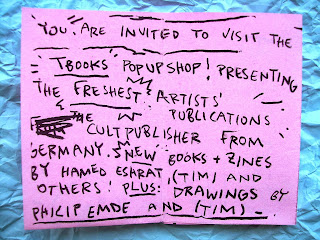 YOU ARE INVITED TO VISIT THE
TBOOKS POPUPSHOP! PRESENTING
THE FRESHEST ARTISTS'
PUBLICATIONS
THE
CULTPUBLISHER FROM
GERMANY. NEW BOOKS + ZINES
BY HAMED ESHRAT, (TIM) AND
OTHERS! PLUS: DRAWINGS BY
PHILIP EMDE AND (TIM)